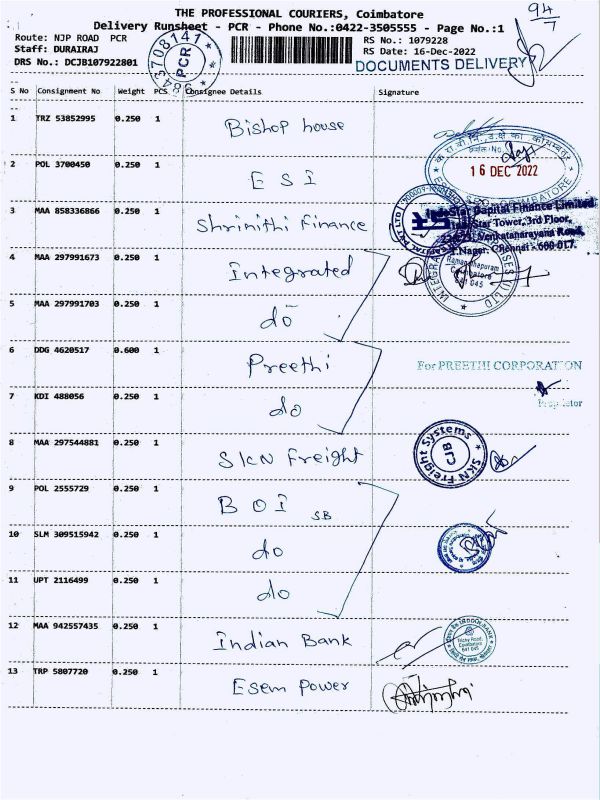 THE PROFESSIONAL COURIERS, Coimbatore
Delivery Runsheet - PCR - Phone No.:0422-3505555 - Page No.:1
94/7
Route: NJP ROAD PCR
RS No.: 1079228
Staff: DURAIRAJ
RS Date: 16-Dec-2022
DRS No.: DCJB107922801
DOCUMENTS DELIVERY
PCR
S No Consignment No Weight PCS Consignee Details Signature
1 TRZ 53852995 0.250 1 Bishop house
2 POL 3700450 0.250 1 E S I
16 DEC 2022
3 MAA 858336866 0.250 1 Shrinithi Finance
IndoStar Capital Finance Limited
IndoStar Tower, 3rd Floor,
Venkatanarayana Road,
T.Nagar, Chennai - 600 017.
4 MAA 297991673 0.250 1 Integrated
Ramanathapuram
Coimbatore
641 045
5 MAA 297991703 0.250 1 do
6 DDG 4620517 0.600 1 Preethi
For PREETHI CORPORATION
7 KDI 488056 0.250 1 do
Proprietor
8 MAA 297544881 0.250 1 SKN Freight
SKN Freight Systems
CJB
9 POL 2555729 0.250 1 B O I SB
10 SLM 309515942 0.250 1 do
11 UPT 2116499 0.250 1 do
12 MAA 942557435 0.250 1 Indian Bank
INDIAN BANK
Trichy Road,
Coimbatore
641 045
13 TRP 5807720 0.250 1 Esem Power